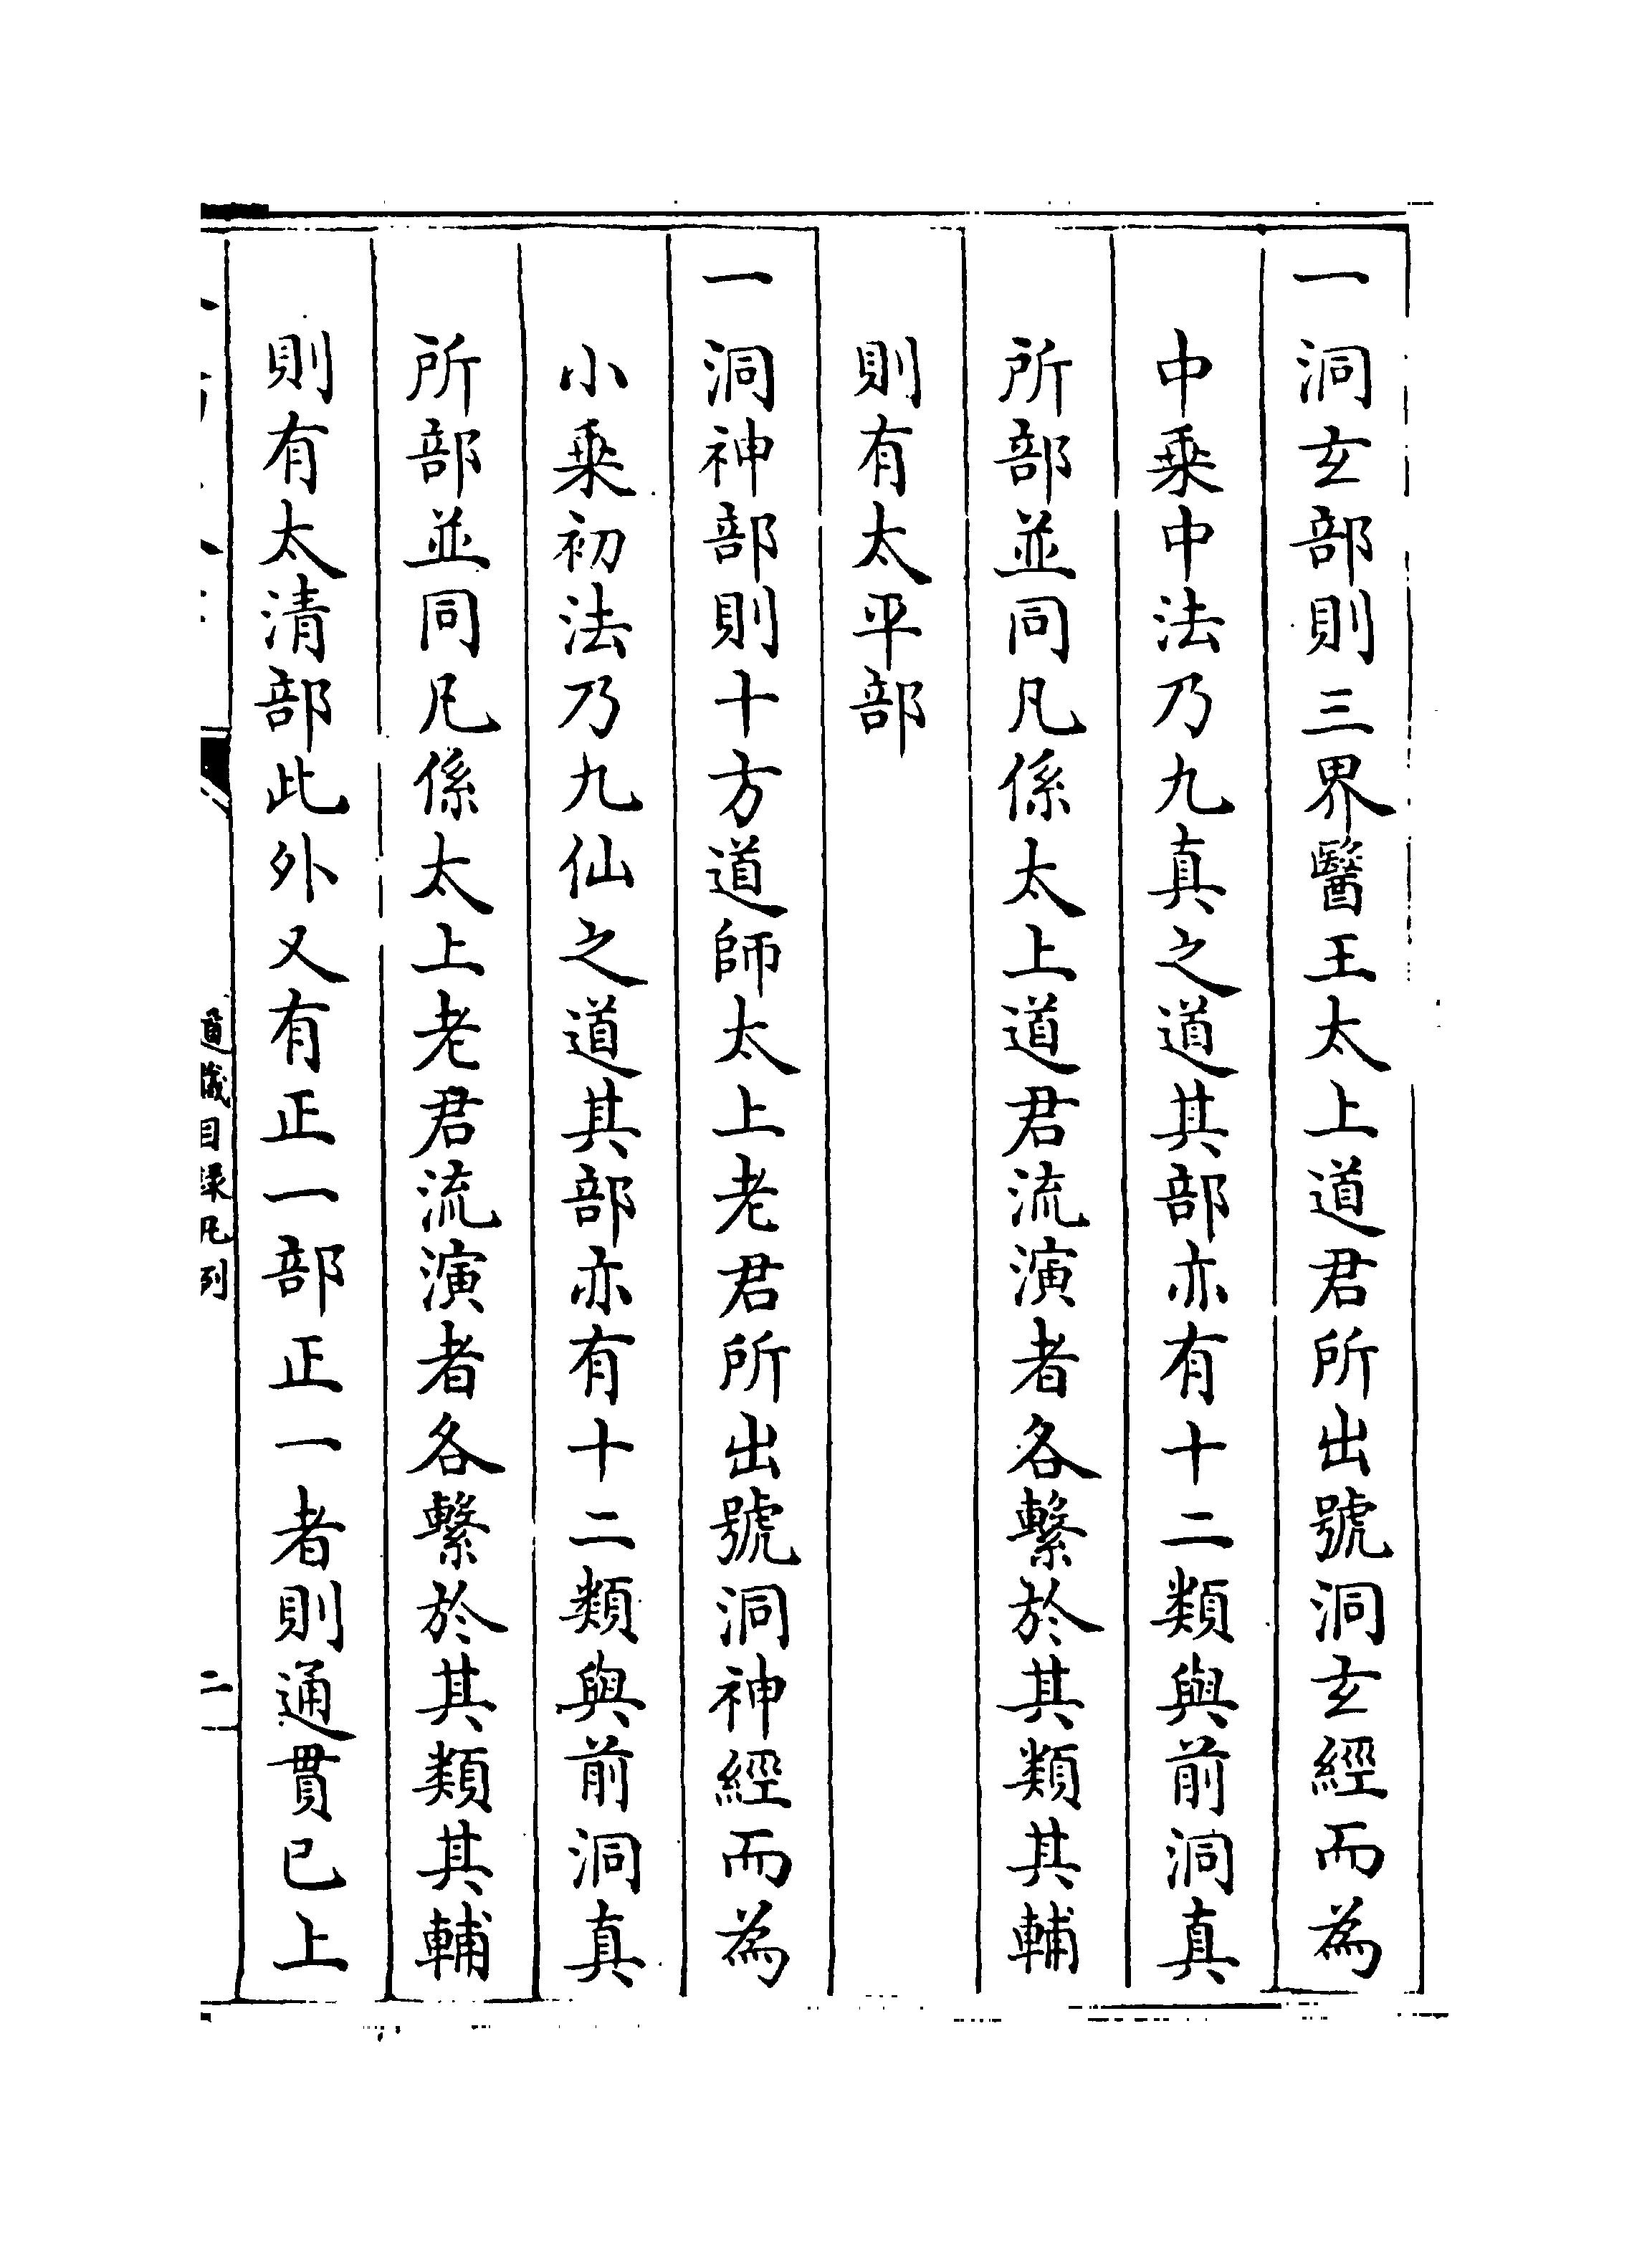 一洞玄部則三界醫王太上道君所出號洞玄經而為
中乗中法乃九真之道其部亦有十二類與前洞真
所部並同凡係太上道君流演者各繫於其類其輔
則有太平部
一洞神部則十方道師太上老君所出號洞神經而為
小乗初法乃九仙之道其部亦有十二類與前洞真
所部並同凡係太上老君流演者各繫於其類其輔
則有太清部此外又有正一部正一者則通貫已上
道藏目録凡例
二